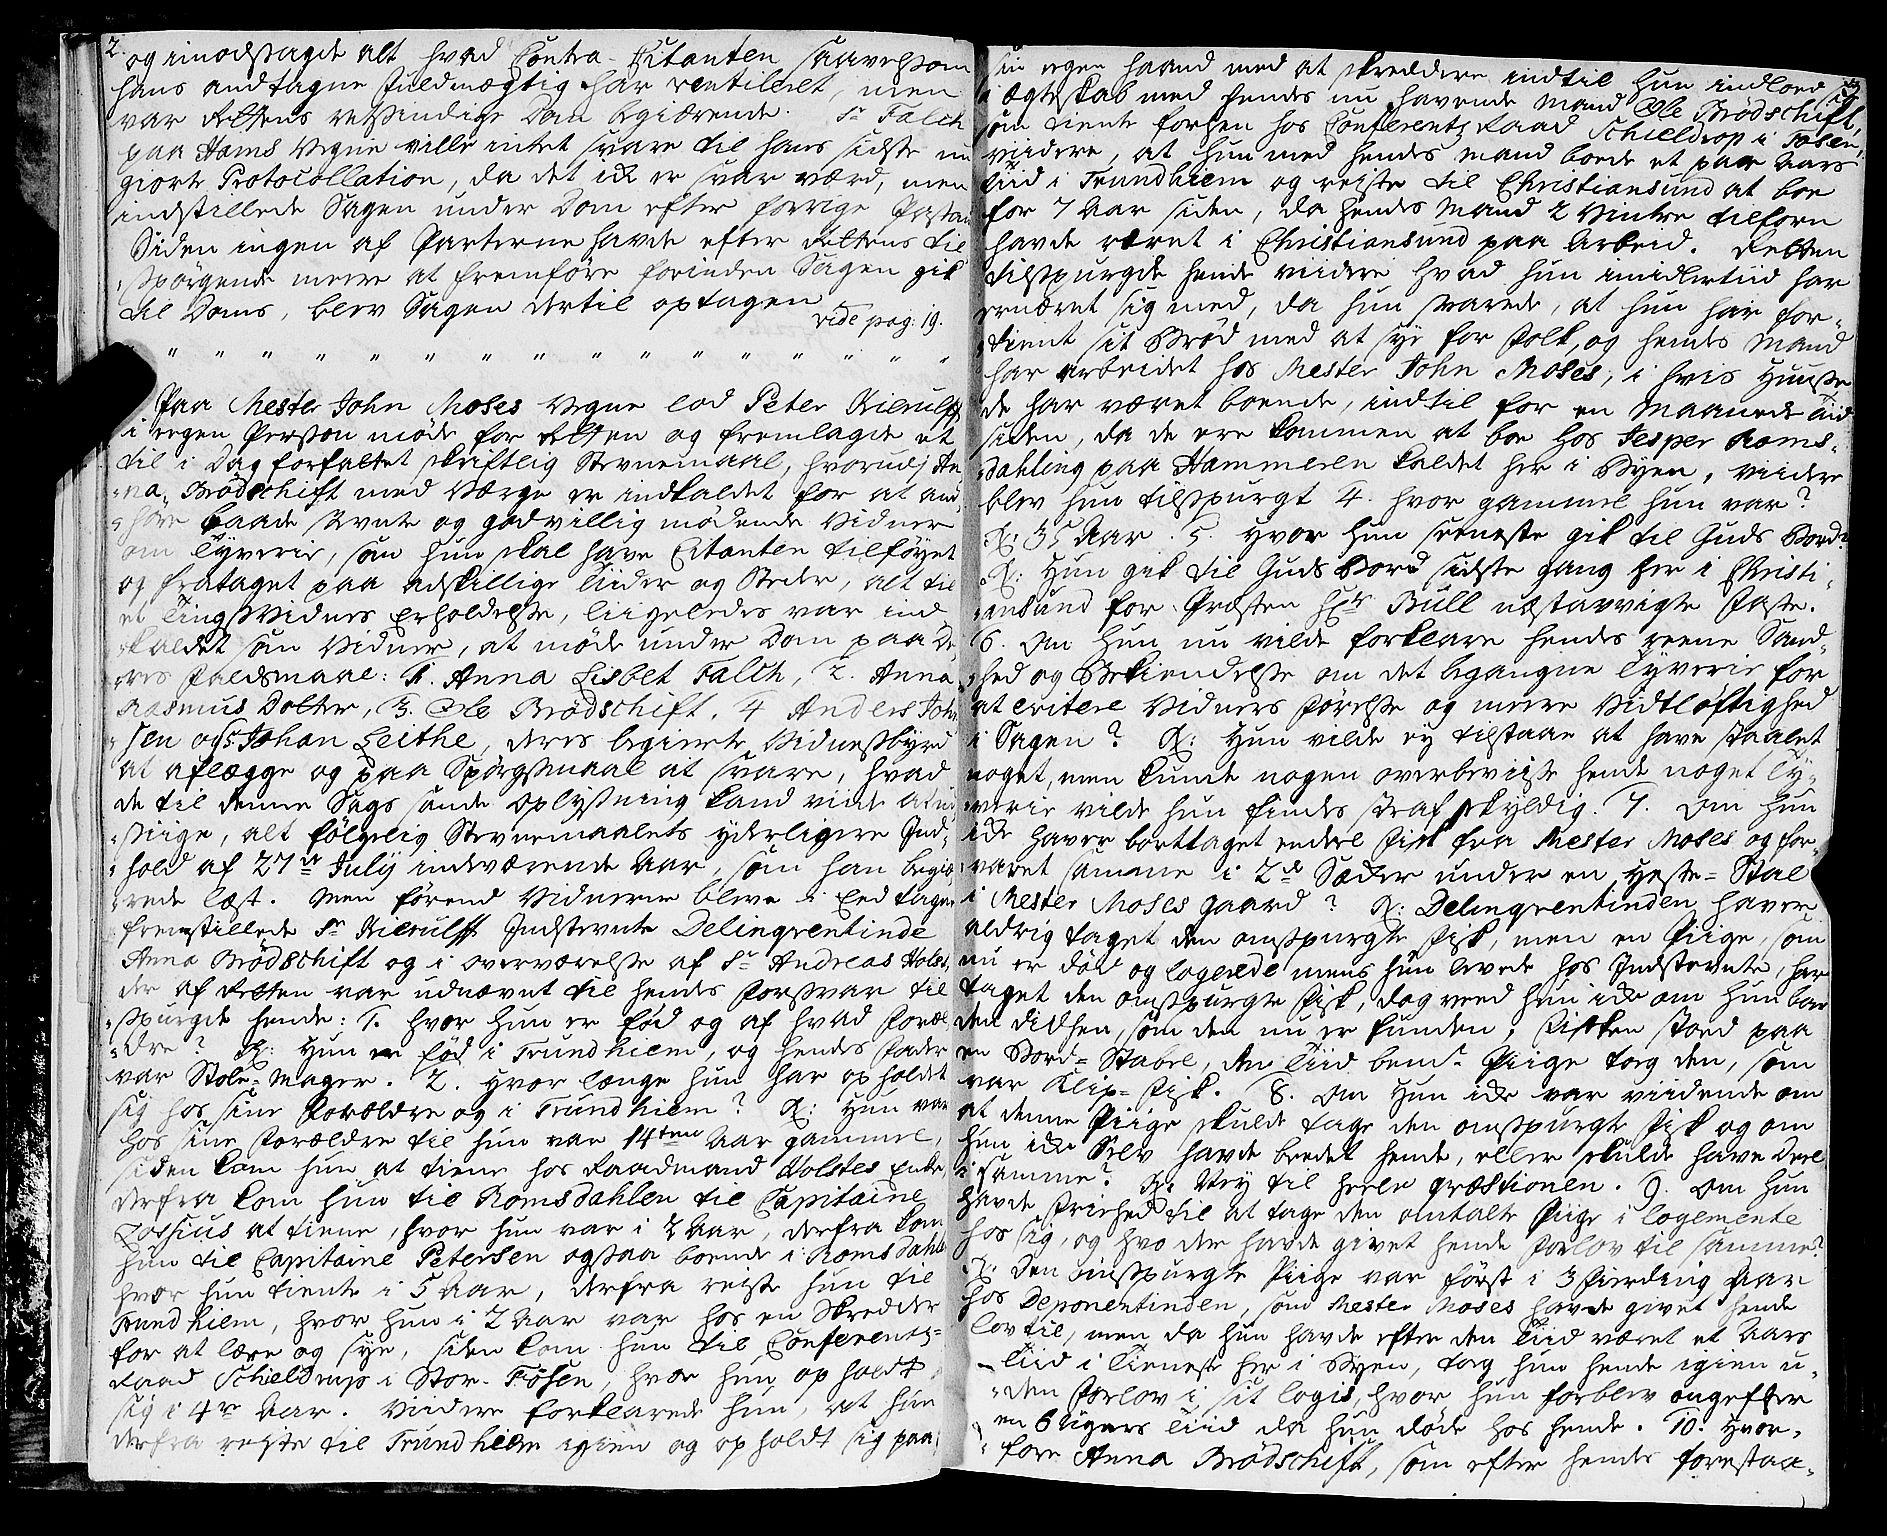 2.
og imodsagde alt hvad Contra-Citanten saavelsom
hans andtagne fuldmægtig har ventileret, men
var Rettens retsindige Dom begiærende. Sr Falch
paa Hams Vegne ville intet svare til hans sidste nu
giorte Protocollation, da det ike er svar værd, men
indstillede Sagen under Dom efter forrige Paastand
Siden ingen af Parterne havde efter Rettens til
spørgende meere at fremføre forinden Sagen gik
til Doms, blev Sagen dertil optagen
vide pag: 19.
" " " " " " " " " " " " " " "
Paa Mester John Moses Vegne lod Peter Hierulff
i egen Person møde for Retten og fremlagde et
til i Dag forfattet skriftlig Stevnemaal, hvorudj An
na Brodschift med Værge er indkaldet for at an
høre baade stevnte og godvillig mødende Vidner
om Tyverie, som hun skal have Citanten tilføyet
og frataget paa adskillige Tiider og Steder, alt til
et TingsVidnes Erholdelse, liigeledes var ind
kaldet som Vidner, at møde under Dom paa De
res Faldsmaal: 1. Anna Lisbet Falch, 2. Anna
Rasmus Dotter, 3. Ole Brodschift. 4 Anders John
sen og 5. Johan Leithe, deres begierte Vidnesbyrd
at aflægge og paa Spørgsmaal at svare, hvad
de til denne Sags sande Oplysning kand vide at ud
siige, alt følgelig Stevnemaalets yderligere Ind-
hold af 27de July indeværende Aar, som han begiæ
rede læst. Men førend Vidnerne bleve i Eed tagne
fremstillede Sr Hierulff Indstevnte Delinqventinde
Anna Brodschift og i overværelse af Sr Andreas Holst,
der af Retten var udnævnt til hendes Forsvar til
spurgte hende: 1. hvor hun er fød og af hvad Foræl
dre? R: Hun er fød i Trundhiem, og hendes Fader
var Stole-Mager. 2. Hvor længe hun har opholdet
sig hos sine Forældre og i Trundhiem? R: Hun var
hos sine Forældre til hun var 14ten Aar gammel,
siden kom hun at tiene hos Raadmand Holstes Enke,
derfra kom hun til Romsdahlen til Capitaine
Zossius at tiene, hvor hun var i 2 Aar, derfra kom
hun til Capitaine Petersen ogsaa boende i Romsdahle
hvor hun tiente i 5 Aar, derfra reiste hun til
Trundhiem, hvor hun i 2 Aar var hos en Skredder
for at lære og sye, siden kom hun til Conferentz-
Raad Schieldrups i Stor-Fosen, hvor hun opholdt
sig i 4re Aar. Viidere forklarede hun, at hun
derfra reiste til Trundhiem igien og opholdt sig paa
sin egen haand med at skreddere indtil hun indloed sig
i Ægteskab med hendes nu havende Mand Ole Brodschift,
som tiente forhen hos Conferentz Raad Schieldrop i Fosen,
viidere, at hun med hendes Mand boede et paar Aars
Tiid i Trundhiem og reiste til Christiansund at boe
for 7 Aar siden, da hendes Mand 2 Vintre tilforn
havde været i Christiansund paa Arbeid. Retten
tilspurgte hende viidere hvad hun imidlertiid har
ernæret sig med, da hun svarede, at hun har for-
tient sit Brød med at sye for Folk, og hendes Mand
har arbeidet hos Mester John Moses, i hvis Huuse
de har været boende, indtil for en Maanede Tiid
siden, da de ere kommen at boe hos Jesper Roms-
dahling paa Hammeren kaldet her i Byen, viidere
blev hun tilspurgt 4. hvor gammel hun var?
R: 35 Aar. 5. Hvor hun seeneste gik til Guds Bord?
R: Hun gik til Guds Bord sidste gang her i Christi-
ansund for Præsten Hr Bull næstavvigte Faste.
6. Om Hun nu vilde forklare hendes reene Sand-
hed og Bekiendelse om det begangne Tyverie for
at evitere Vidners Førelse og meere Vidtløftighed
i Sagen? R: Hun vilde ey tilstaae at have staalet
noget, men kunde nogen overbeviise hende noget Ty-
verie vilde hun findes straf skyldig. 7. Om Hun
ike haver borttaget endeel Fisk fra Mester Moses og for-
varet samme i 2de Sæker under en Heste-Stal
i Mester Moses Gaard? R: Delinqventinden haver
aldrig taget den omspurgte Fisk, men en Piige, som
nu er død og logerede mens hun levede hos Indstevnte, har
taget den omspurgte Fisk, dog veed hun ike om hun bar
den didhen, som den nu er funden; Fisken stoed paa
en Bord-Stabel, den Tiid bemte Piige tog den, som
var Klip-Fisk. 8. Om Hun ike var viidende om
at denne Piige skulde tage den omspurgte Fisk og om
hun ike selv havde beedet hende, eller skulde have Deel
i samme? R: Ney til heele qvæstionen. 9. Om hun
havde Friehed til at tage den omtalte Piige i logemente
hos sig, og hvo der havde givet hende Forlov til samme?
R: Den omspurgte Piige var først i 3 Fierding Aar
hos Deponentinden, som Mester Moses havde givet hende
lov til, men da hun havde efter den Tiid været et Aars
Tiid i Tieneste her i Byen, tog hun hende igien u-
den Forlov i sit logis, hvor hun forblev ongefehr
en 6 Ugers Tiid da hun døde hos hende. 10. Hvor-
fore Anna Brodschift, som efter hendes forestaa-